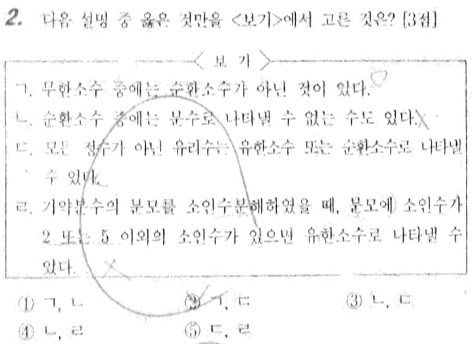 2. 다음 설명 중 옳은 것만을 <보기>에서 고른 것은? [3점]
< 보 기 >
ㄱ. 무한소수 중에는 순환소수가 아닌 것이 있다.
ㄴ. 순환소수 중에는 분수로 나타낼 수 없는 수도 있다.
ㄷ. 모든 정수가 아닌 유리수는 유한소수 또는 순환소수로 나타낼
수 있다.
ㄹ. 기약분수의 분모를 소인수분해하였을 때, 분모에 소인수가
2 또는 5 이외의 소인수가 있으면 유한소수로 나타낼 수
있다.
① ㄱ, ㄴ ② ㄱ, ㄷ ③ ㄴ, ㄷ
④ ㄴ, ㄹ ⑤ ㄷ, ㄹ